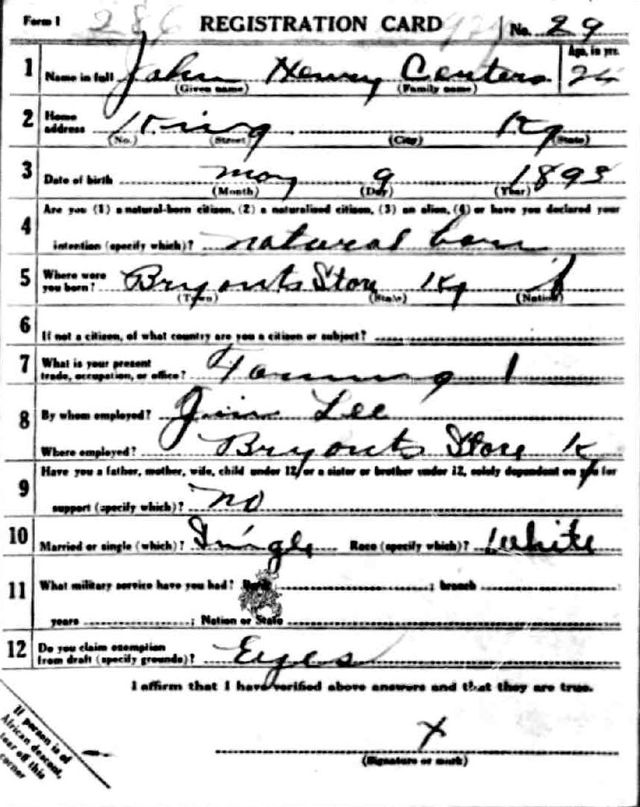 Form 1 286 REGISTRATION CARD No. 29
1 Name in full John Henry Centers Age, in yrs. 24
(Given name) (Family name)
2 Home address King Ky
(No.) (Street) (City) (State)
3 Date of birth May 9 1893
(Month) (Day) (Year)
4 Are you (1) a natural-born citizen, (2) a naturalized citizen, (3) an alien, (4) or have you declared your
intention (specify which)? natural born
5 Where were you born? Bryants Store Ky
(Town) (State) (Nation)
6 If not a citizen, of what country are you a citizen or subject?
7 What is your present trade, occupation, or office? Farming
8 By whom employed? Jim Lee
Where employed? Bryants Store Ky
9 Have you a father, mother, wife, child under 12, or a sister or brother under 12, solely dependent on you for
support (specify which)? no
10 Married or single (which)? Single Race (specify which)? White
11 What military service have you had? Rank ; branch
years ; Nation or State
12 Do you claim exemption from draft (specify grounds)? Eyes
I affirm that I have verified above answers and that they are true.
X
(Signature or mark)
If person is of
African descent,
tear off this
corner